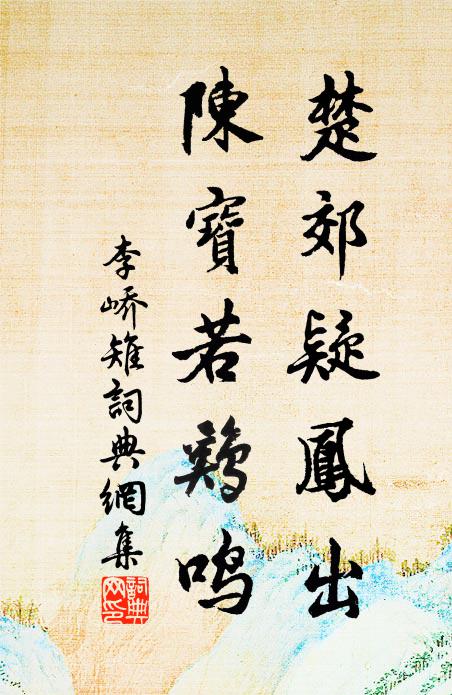 楚郊疑鳳出
陳寶若鷄鳴
李嶠雉詞典網集
詞典